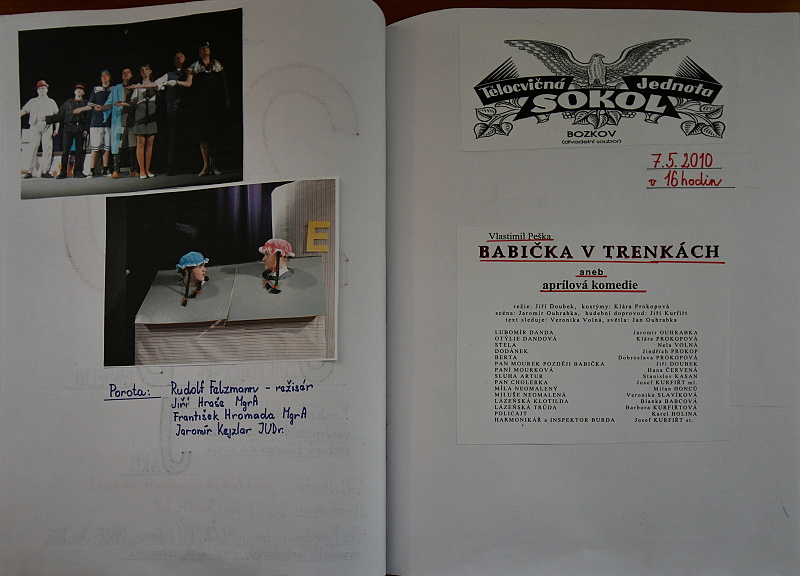 E
Porota: Rudolf Felzmann - režisér
Jiří Hraše MgrA
František Hromada MgrA
Jaromír Kejzlar JUDr.
Tělocvičná Jednota
SOKOL
BOZKOV
(divadelní soubor)
7.5.2010
v 16 hodin
Vlastimil Peška
BABIČKA V TRENKÁCH
aneb
aprílová komedie
režie: Jiří Doubek, kostýmy: Klára Prokopová
scéna: Jaromír Ouhrabka, hudební doprovod: Jiří Kurfiřt
text sleduje: Veronika Volná, světla: Jan Ouhrabka
LUBOMÍR DANDA Jaromír OUHRABKA
OTYLIE DANDOVÁ Klára PROKOPOVÁ
STELA Nela VOLNÁ
DODÁNEK Jindřich PROKOP
BERTA Dobroslava PROKOPOVÁ
PAN MOUREK POZDĚJI BABIČKA Jiří DOUBEK
PANÍ MOURKOVÁ Hana ČERVENÁ
SLUHA ARTUR Stanislav KASAN
PAN CHOLERKA Josef KURFIŘT ml.
MÍLA NEOMALENÝ Milan HONCŮ
MILUŠE NEOMALENÁ Veronika SLAVÍKOVÁ
LÁZEŇSKÁ KLOTILDA Blanka BABCOVÁ
LÁZEŇSKÁ TRŮDA Barbora KURFIŘTOVÁ
POLICAJT Karel HOLINA
HARMONIKÁŘ a INSPEKTOR BURDA Josef KURFIŘT st.